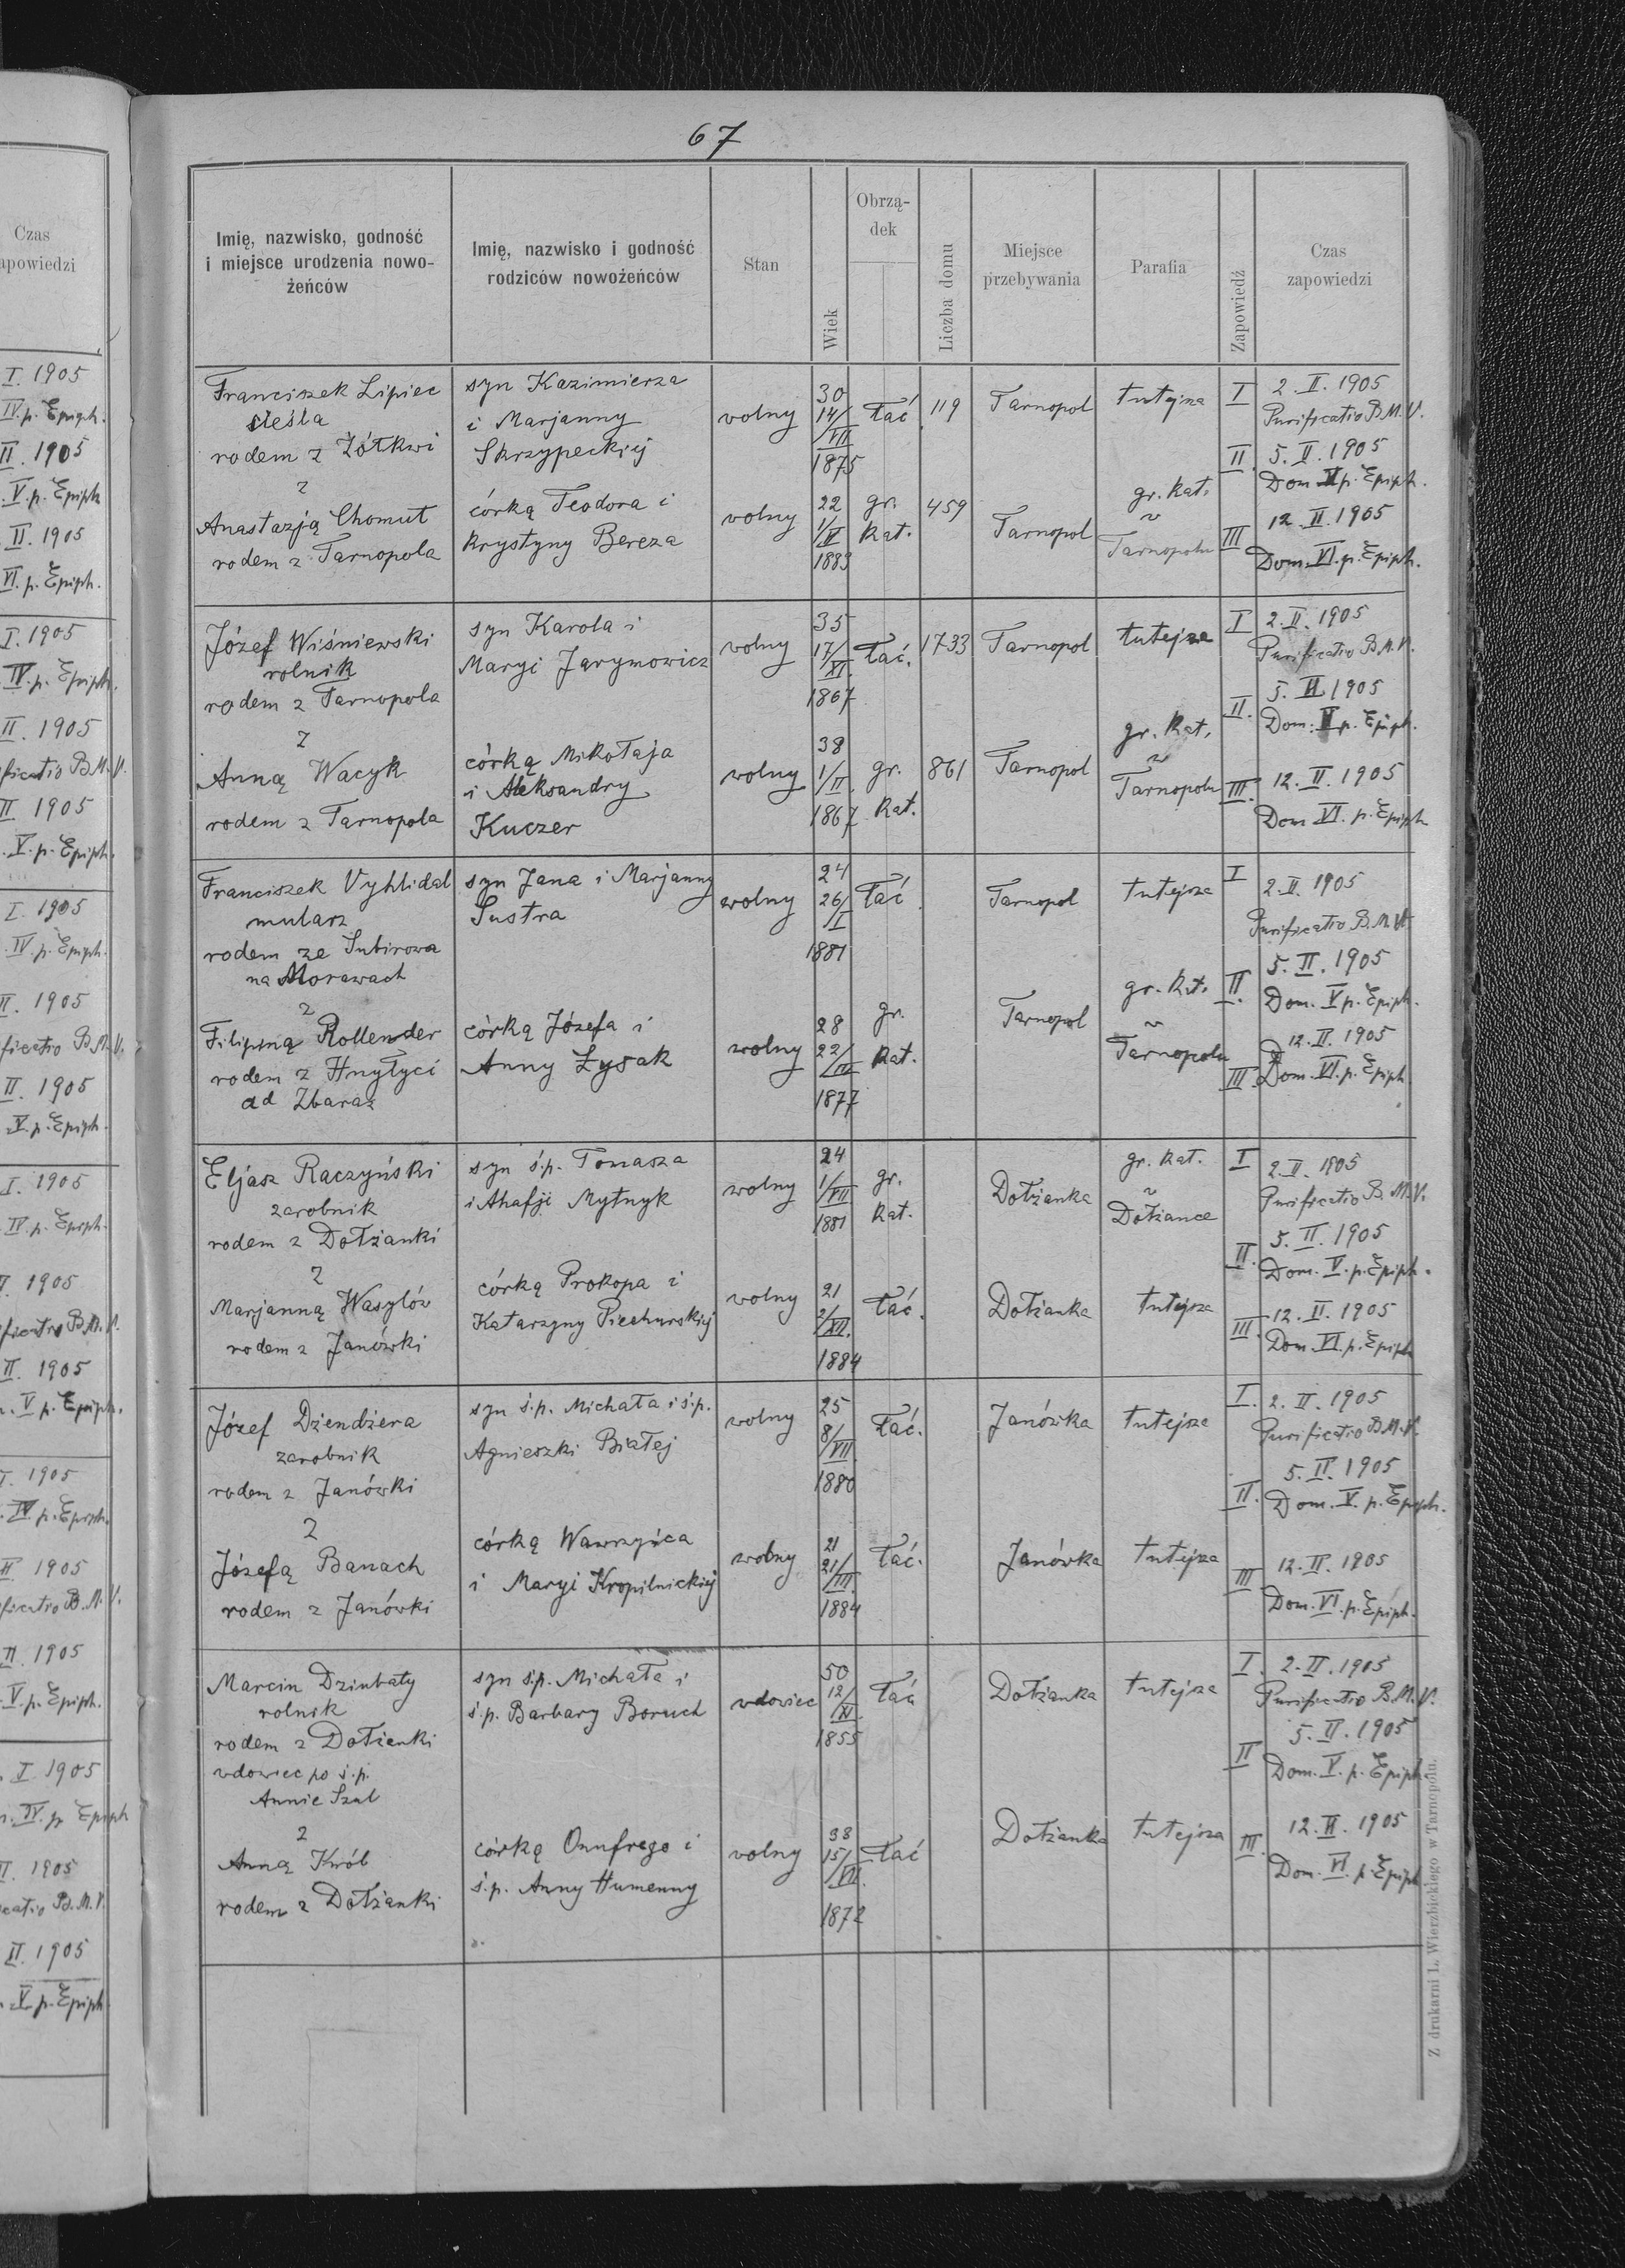 67
Imię, nazwisko, godność
i miejsce urodzenia nowo-
żeńców
Imię, nazwisko i godność
rodziców nowożeńców
Stan
Wiek
Obrzą-
dek
Liczba domu
Miejsce
przebywania
Parafia
Zapowiedź
Czas
zapowiedzi
Franciszek Lipiec
cieśla
rodem z Żółkwi
syn Kazimierza
i Marjanny
Skrzypeckiej
wolny
30
14/VII
1875
łać
119
Tarnopol
tutejsza
I
2. II. 1905
Purificatio B.M.V.
II
5. II. 1905
Dom V p. Epiph.
z
Anastazją Chomut
rodem z Tarnopola
córką Teodora i
Krystyny Bereza
wolny
22
1/V
1883
gr.
kat.
459
Tarnopol
gr. kat.
w
Tarnopolu
III
12. II. 1905
Dom. VI. p. Epiph.
Józef Wiśniewski
rolnik
rodem z Tarnopola
syn Karola i
Maryi Jarymowicz
wolny
35
17/XI.
1867
łać.
1733
Tarnopol
tutejsza
I
2. II. 1905
Purificatio B.M.V.
II.
5. II 1905
Dom. V p. Epiph.
z
Anną Wacyk
rodem z Tarnopola
córką Mikołaja
i Aleksandry
Kuczer
wolny
38
1/II.
1867
gr.
kat.
861
Tarnopol
gr. kat.
w
Tarnopolu
III.
12. II. 1905
Dom VI. p. Epiph
Franciszek Vyhlidal
mularz
rodem ze Subirowa
na Morawach
syn Jana i Marjanny
Sustra
wolny
24
26/I
1881
łać
Tarnopol
tutejsza
I
2. II. 1905
Purificatio B.M.V.
II.
5. II. 1905
Dom. V p. Epiph.
z
Filipiną Rollender
rodem z Hnyłyci
ad Zbaraż
córką Józefa i
Anny Łysak
wolny
28
22/III
1877
gr.
kat.
Tarnopol
gr. kat.
w
Tarnopolu
III.
12. II. 1905
Dom. VI. p. Epiph.
Eljasz Raczyński
zarobnik
rodem z Dołżanki
syn ś.p. Tomasza
i Ahafji Mytnyk
wolny
24
1/VII
1881
gr.
kat.
Dołżanka
gr. kat.
w
Dołżance
I
2. II. 1905
Purificatio B.M.V.
II.
5. II. 1905
Dom. V. p. Epiph.
z
Marjanną Wasylów
rodem z Janówki
córką Prokopa i
Katarzyny Piechurskiej
wolny
21
2/XII.
1884
łać.
Dołżanka
tutejsza
III.
12. II. 1905
Dom. VI. p. Epiph
Józef Dżendżera
zarobnik
rodem z Janówki
syn ś.p. Michała i ś.p.
Agnieszki Białej
wolny
25
8/VII
1880
łać.
Janówka
tutejsza
I.
2. II. 1905
Purificatio B.M.V.
II.
5. II. 1905
Dom. V. p. Epiph.
z
Józefą Banach
rodem z Janówki
córką Wawrzyńca
i Maryi Kropilnickiej
wolny
21
21/III.
1884
łać.
Janówka
tutejsza
III
12. II. 1905
Dom. VI. p. Epiph.
Marcin Dziubaty
rolnik
rodem z Dołżanki
wdowiec po ś.p.
Annie Szal
syn ś.p. Michała i
ś.p. Barbary Boruch
wdowiec
50
12/XI.
1855
łać
Dołżanka
tutejsza
I.
2. II. 1905
Purificatio B.M.V.
II
5. II. 1905
Dom. V. p. Epiph.
z
Anną Król
rodem z Dołżanki
córką Onufrego i
ś.p. Anny Humenny
wolny
33
15/VII.
1872
łać
Dołżanka
tutejsza
III.
12. II. 1905
Dom. VI p. Epiph.
Z drukarni L. Wierzbickiego w Tarnopolu.